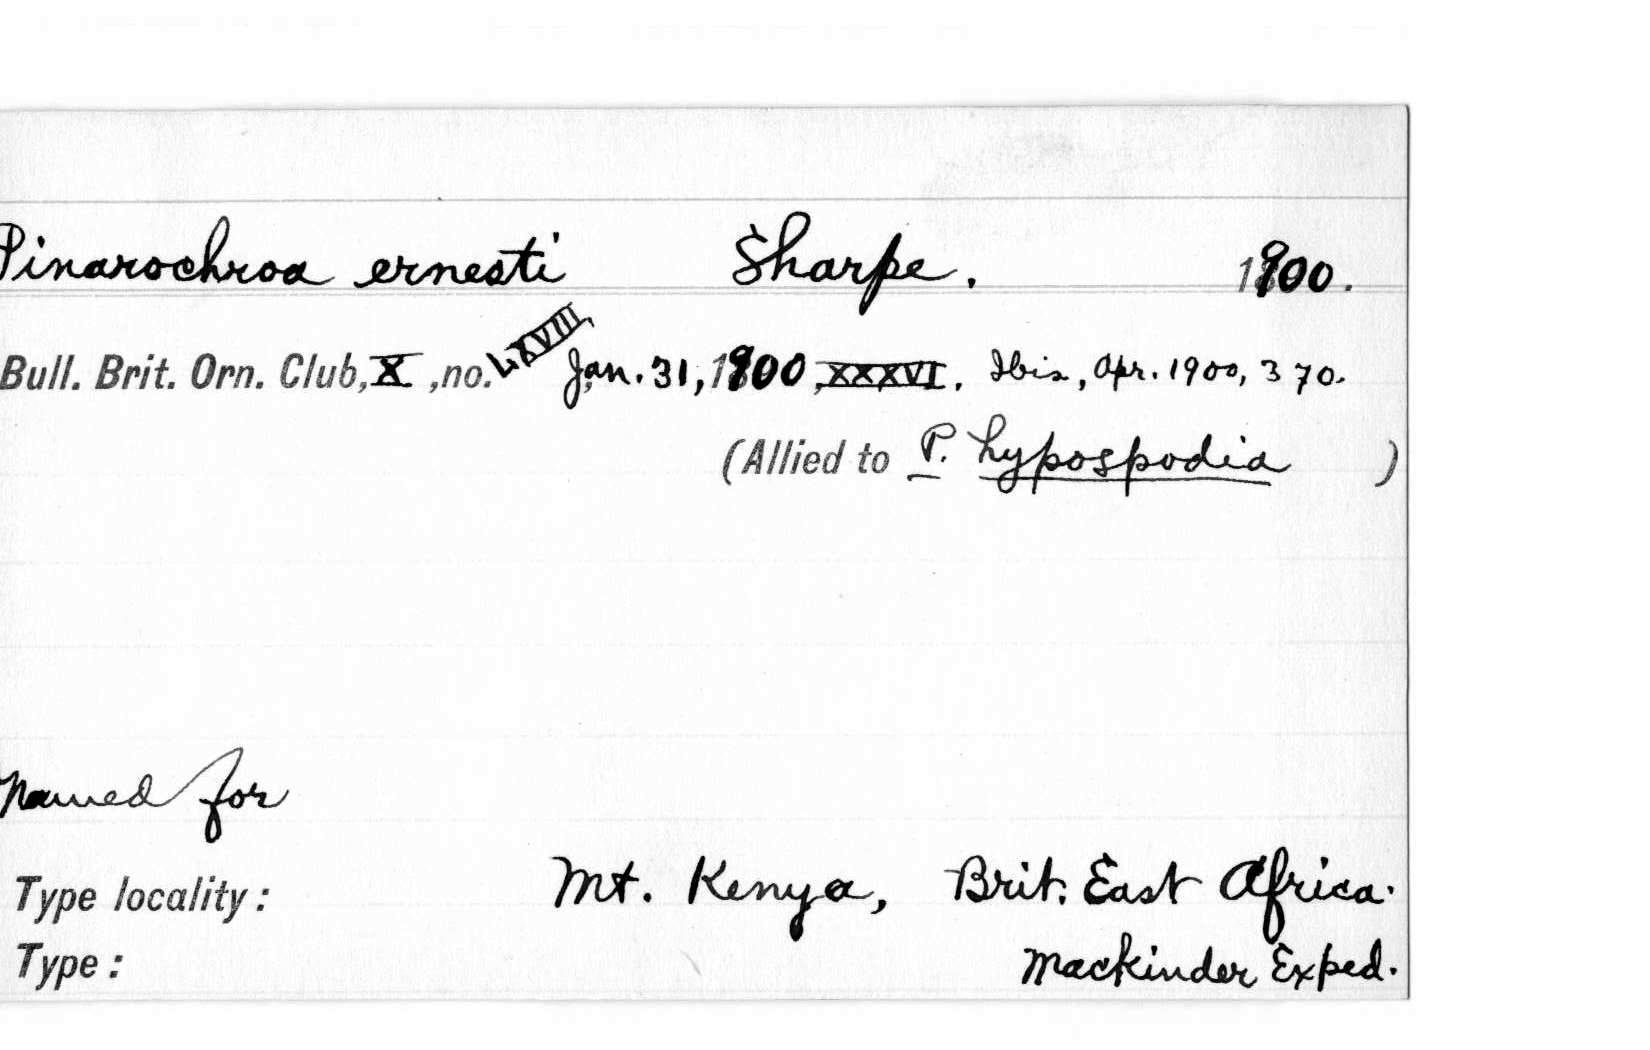 Pinarochroa ernesti Sharpe. 1900.
Bull. Brit. Orn. Club, X, no. LXVIII, Jan. 31, 1900, XXXVI. Ibis, Apr. 1900, 370.
(Allied to P. hypospodia )
Named for
Type locality: Mt. Kenya, Brit. East Africa.
Type: Mackinder Exped.